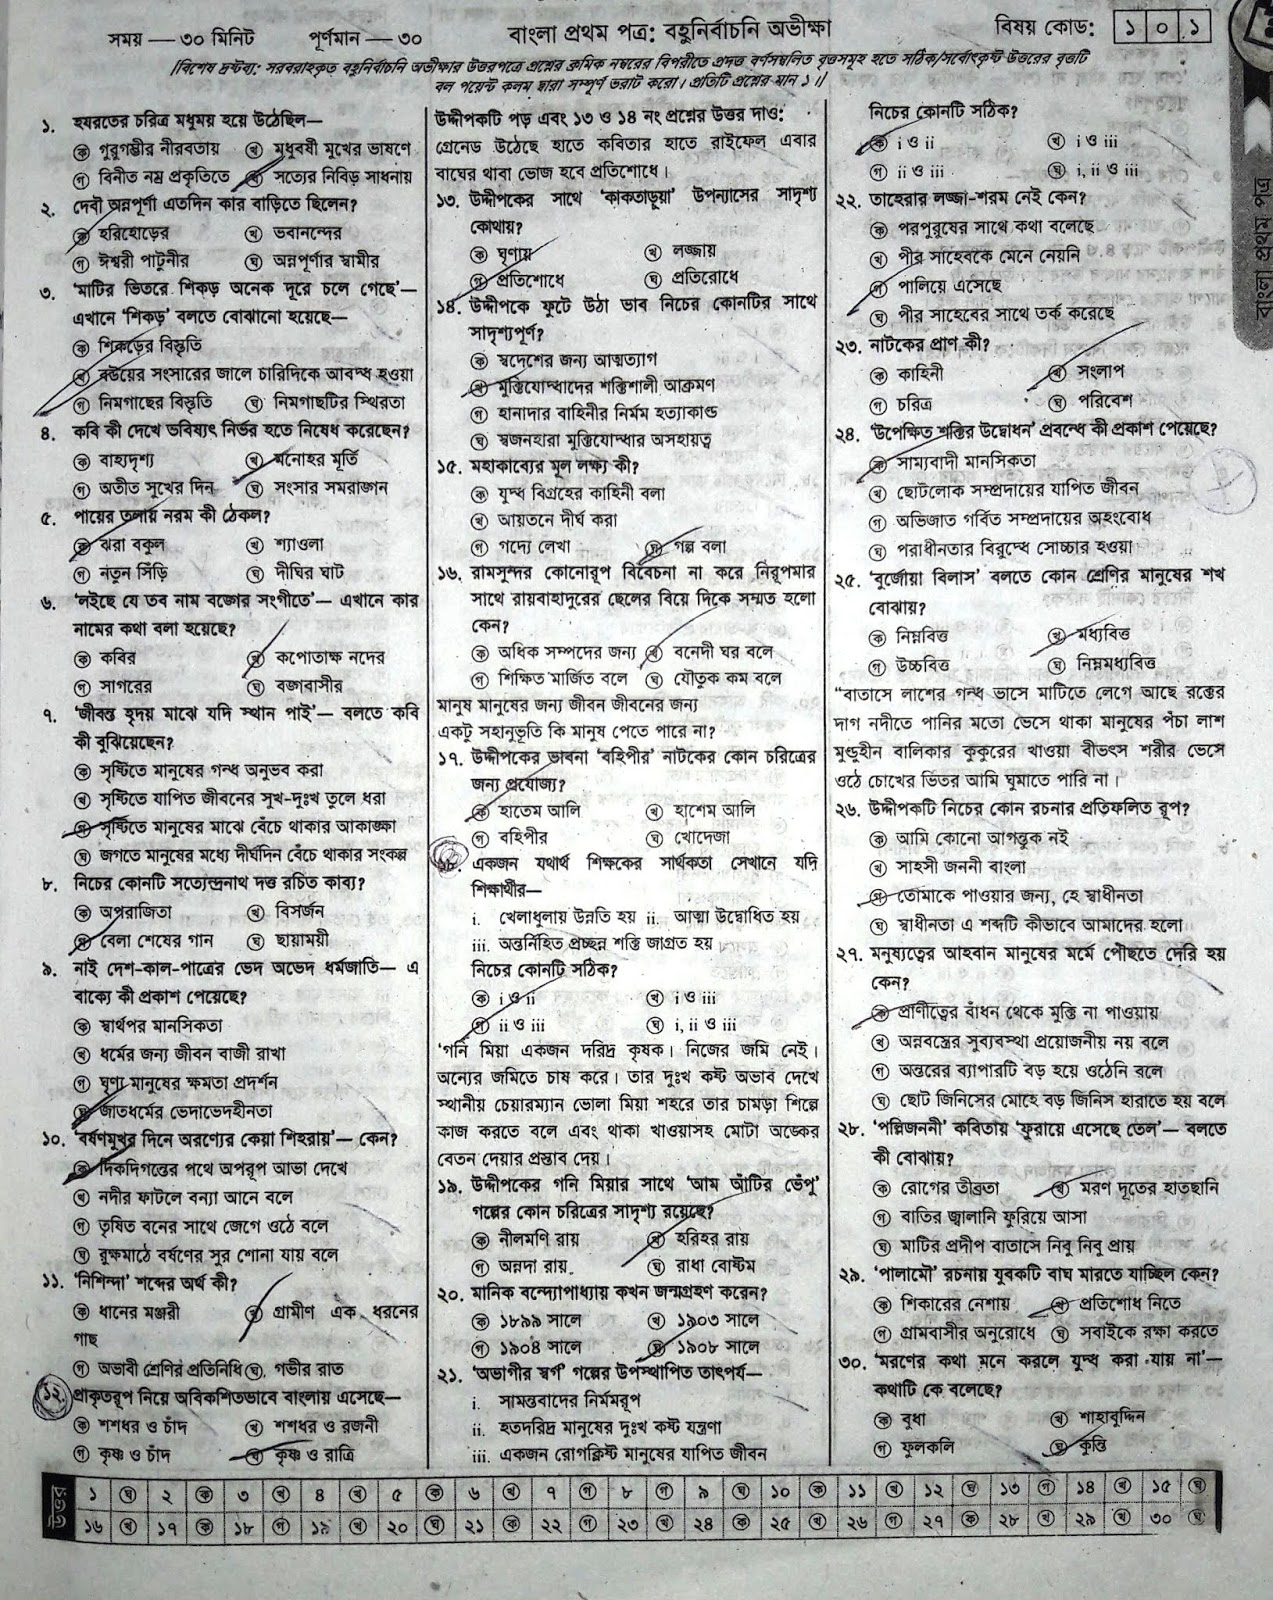 সময় — ৩০ মিনিট পূর্ণমান — ৩০
বাংলা প্রথম পত্র: বহুনির্বাচনি অভীক্ষা
বিষয় কোড: ১ ০ ১
[বিশেষ দ্রষ্টব্য: সরবরাহকৃত বহুনির্বাচনি অভীক্ষার উত্তরপত্রে প্রশ্নের ক্রমিক নম্বরের বিপরীতে প্রদত্ত বর্ণসম্বলিত বৃত্তসমূহ হতে সঠিক/সর্বোৎকৃষ্ট উত্তরের বৃত্তটি
বল পয়েন্ট কলম দ্বারা সম্পূর্ণ ভরাট করো। প্রতিটি প্রশ্নের মান ১।]
১. হযরতের চরিত্র মধুময় হয়ে উঠেছিল—
ক গুরুগম্ভীর নীরবতায় খ মধুবর্ষী মুখের ভাষণে
গ বিনীত নম্র প্রকৃতিতে ঘ সত্যের নিবিড় সাধনায়
২. দেবী অন্নপূর্ণা এতদিন কার বাড়িতে ছিলেন?
ক হরিহোড়ের খ ভবানন্দের
গ ঈশ্বরী পাটুনীর ঘ অন্নপূর্ণার স্বামীর
৩. 'মাটির ভিতরে শিকড় অনেক দূরে চলে গেছে'—
এখানে 'শিকড়' বলতে বোঝানো হয়েছে—
ক শিকড়ের বিস্তৃতি
খ বউয়ের সংসারের জালে চারিদিকে আবদ্ধ হওয়া
গ নিমগাছের বিস্তৃতি ঘ নিমগাছটির স্থিরতা
৪. কবি কী দেখে ভবিষ্যৎ নির্ভর হতে নিষেধ করেছেন?
ক বাহ্যদৃশ্য খ মনোহর মূর্তি
গ অতীত সুখের দিন ঘ সংসার সমরাঙ্গন
৫. পায়ের তলায় নরম কী ঠেকল?
ক ঝরা বকুল খ শ্যাওলা
গ নতুন সিঁড়ি ঘ দীঘির ঘাট
৬. 'লইছে যে তব নাম বঙ্গের সংগীতে'— এখানে কার
নামের কথা বলা হয়েছে?
ক কবির খ কপোতাক্ষ নদের
গ সাগরের ঘ বঙ্গবাসীর
৭. 'জীবন্ত হৃদয় মাঝে যদি স্থান পাই'— বলতে কবি
কী বুঝিয়েছেন?
ক সৃষ্টিতে মানুষের গন্ধ অনুভব করা
খ সৃষ্টিতে যাপিত জীবনের সুখ-দুঃখ তুলে ধরা
গ সৃষ্টিতে মানুষের মাঝে বেঁচে থাকার আকাঙ্ক্ষা
ঘ জগতে মানুষের মধ্যে দীর্ঘদিন বেঁচে থাকার সংকল্প
৮. নিচের কোনটি সত্যেন্দ্রনাথ দত্ত রচিত কাব্য?
ক অপরাজিতা খ বিসর্জন
গ বেলা শেষের গান ঘ ছায়াময়ী
৯. নাই দেশ-কাল-পাত্রের ভেদ অভেদ ধর্মজাতি— এ
বাক্যে কী প্রকাশ পেয়েছে?
ক স্বার্থপর মানসিকতা
খ ধর্মের জন্য জীবন বাজী রাখা
গ ঘৃণ্য মানুষের ক্ষমতা প্রদর্শন
ঘ জাতধর্মের ভেদাভেদহীনতা
১০. 'বর্ষণমুখর দিনে অরণ্যের কেয়া শিহরায়'— কেন?
ক দিকদিগন্তের পথে অপরূপ আভা দেখে
খ নদীর ফাটলে বন্যা আনে বলে
গ তৃষিত বনের সাথে জেগে ওঠে বলে
ঘ রুক্ষমাঠে বর্ষণের সুর শোনা যায় বলে
১১. 'নিশিন্দা' শব্দের অর্থ কী?
ক ধানের মঞ্জরী খ গ্রামীণ এক ধরনের
গাছ
গ অভাবী শ্রেণির প্রতিনিধি ঘ গভীর রাত
১২. প্রাকৃতরূপ নিয়ে অবিকশিতভাবে বাংলায় এসেছে—
ক শশধর ও চাঁদ খ শশধর ও রজনী
গ কৃষ্ণ ও চাঁদ ঘ কৃষ্ণ ও রাত্রি
উদ্দীপকটি পড় এবং ১৩ ও ১৪ নং প্রশ্নের উত্তর দাও:
গ্রেনেড উঠেছে হাতে কবিতার হাতে রাইফেল এবার
বাঘের থাবা ভোজ হবে প্রতিশোধে।
১৩. উদ্দীপকের সাথে 'কাকতাড়ুয়া' উপন্যাসের সাদৃশ্য
কোথায়?
ক ঘৃণায় খ লজ্জায়
গ প্রতিশোধে ঘ প্রতিরোধে
১৪. উদ্দীপকে ফুটে উঠা ভাব নিচের কোনটির সাথে
সাদৃশ্যপূর্ণ?
ক স্বদেশের জন্য আত্মত্যাগ
খ মুক্তিযোদ্ধাদের শক্তিশালী আক্রমণ
গ হানাদার বাহিনীর নির্মম হত্যাকাণ্ড
ঘ স্বজনহারা মুক্তিযোদ্ধার অসহায়ত্ব
১৫. মহাকাব্যের মূল লক্ষ্য কী?
ক যুদ্ধ বিগ্রহের কাহিনী বলা
খ আয়তনে দীর্ঘ করা
গ গদ্যে লেখা ঘ গল্প বলা
১৬. রামসুন্দর কোনোরূপ বিবেচনা না করে নিরুপমার
সাথে রায়বাহাদুরের ছেলের বিয়ে দিকে সম্মত হলো
কেন?
ক অধিক সম্পদের জন্য খ বনেদী ঘর বলে
গ শিক্ষিত মার্জিত বলে ঘ যৌতুক কম বলে
মানুষ মানুষের জন্য জীবন জীবনের জন্য
একটু সহানুভূতি কি মানুষ পেতে পারে না?
১৭. উদ্দীপকের ভাবনা 'বহিপীর' নাটকের কোন চরিত্রের
জন্য প্রযোজ্য?
ক হাতেম আলি খ হাশেম আলি
গ বহিপীর ঘ খোদেজা
১৮. একজন যথার্থ শিক্ষকের সার্থকতা সেখানে যদি
শিক্ষার্থীর—
i. খেলাধুলায় উন্নতি হয় ii. আত্মা উদ্বোধিত হয়
iii. অন্তর্নিহিত প্রচ্ছন্ন শক্তি জাগ্রত হয়
নিচের কোনটি সঠিক?
ক i ও ii খ i ও iii
গ ii ও iii ঘ i, ii ও iii
'গনি মিয়া একজন দরিদ্র কৃষক। নিজের জমি নেই।
অন্যের জমিতে চাষ করে। তার দুঃখ কষ্ট অভাব দেখে
স্থানীয় চেয়ারম্যান ভোলা মিয়া শহরে তার চামড়া শিল্পে
কাজ করতে বলে এবং থাকা খাওয়াসহ মোটা অঙ্কের
বেতন দেয়ার প্রস্তাব দেয়।
১৯. উদ্দীপকের গনি মিয়ার সাথে 'আম আঁটির ভেঁপু'
গল্পের কোন চরিত্রের সাদৃশ্য রয়েছে?
ক নীলমণি রায় খ হরিহর রায়
গ অন্নদা রায় ঘ রাধা বোষ্টম
২০. মানিক বন্দ্যোপাধ্যায় কখন জন্মগ্রহণ করেন?
ক ১৮৯৯ সালে খ ১৯০৩ সালে
গ ১৯০৪ সালে ঘ ১৯০৮ সালে
২১. 'অভাগীর স্বর্গ' গল্পের উপস্থাপিত তাৎপর্য—
i. সামন্তবাদের নির্মমরূপ
ii. হতদরিদ্র মানুষের দুঃখ কষ্ট যন্ত্রণা
iii. একজন রোগক্লিষ্ট মানুষের যাপিত জীবন
নিচের কোনটি সঠিক?
ক i ও ii খ i ও iii
গ ii ও iii ঘ i, ii ও iii
২২. তাহেরার লজ্জা-শরম নেই কেন?
ক পরপুরুষের সাথে কথা বলেছে
খ পীর সাহেবকে মেনে নেয়নি
গ পালিয়ে এসেছে
ঘ পীর সাহেবের সাথে তর্ক করেছে
২৩. নাটকের প্রাণ কী?
ক কাহিনী খ সংলাপ
গ চরিত্র ঘ পরিবেশ
২৪. 'উপেক্ষিত শক্তির উদ্বোধন' প্রবন্ধে কী প্রকাশ পেয়েছে?
ক সাম্যবাদী মানসিকতা
খ ছোটলোক সম্প্রদায়ের যাপিত জীবন
গ অভিজাত গর্বিত সম্প্রদায়ের অহংবোধ
ঘ পরাধীনতার বিরুদ্ধে সোচ্চার হওয়া
২৫. 'বুর্জোয়া বিলাস' বলতে কোন শ্রেণির মানুষের শখ
বোঝায়?
ক নিম্নবিত্ত খ মধ্যবিত্ত
গ উচ্চবিত্ত ঘ নিম্নমধ্যবিত্ত
"বাতাসে লাশের গন্ধ ভাসে মাটিতে লেগে আছে রক্তের
দাগ নদীতে পানির মতো ভেসে থাকা মানুষের পঁচা লাশ
মুণ্ডুহীন বালিকার কুকুরের খাওয়া বীভৎস শরীর ভেসে
ওঠে চোখের ভিতর আমি ঘুমাতে পারি না।
২৬. উদ্দীপকটি নিচের কোন রচনার প্রতিফলিত রূপ?
ক আমি কোনো আগন্তুক নই
খ সাহসী জননী বাংলা
গ তোমাকে পাওয়ার জন্য, হে স্বাধীনতা
ঘ স্বাধীনতা এ শব্দটি কীভাবে আমাদের হলো
২৭. মনুষ্যত্বের আহবান মানুষের মর্মে পৌঁছতে দেরি হয়
কেন?
ক প্রাণীত্বের বাঁধন থেকে মুক্তি না পাওয়ায়
খ অন্নবস্ত্রের সুব্যবস্থা প্রয়োজনীয় নয় বলে
গ অন্তরের ব্যাপারটি বড় হয়ে ওঠেনি বলে
ঘ ছোট জিনিসের মোহে বড় জিনিস হারাতে হয় বলে
২৮. 'পল্লিজননী' কবিতায় 'ফুরায়ে এসেছে তেল'— বলতে
কী বোঝায়?
ক রোগের তীব্রতা খ মরণ দূতের হাতছানি
গ বাতির জ্বালানি ফুরিয়ে আসা
ঘ মাটির প্রদীপ বাতাসে নিবু নিবু প্রায়
২৯. 'পালামৌ' রচনায় যুবকটি বাঘ মারতে যাচ্ছিল কেন?
ক শিকারের নেশায় খ প্রতিশোধ নিতে
গ গ্রামবাসীর অনুরোধে ঘ সবাইকে রক্ষা করতে
৩০. 'মরণের কথা মনে করলে যুদ্ধ করা যায় না'—
কথাটি কে বলেছে?
ক বুধা খ শাহাবুদ্দিন
গ ফুলকলি ঘ কুন্তি
উত্তর
১ ঘ ২ ক ৩ খ ৪ খ ৫ ক ৬ খ ৭ গ ৮ গ ৯ ঘ ১০ ক ১১ খ ১২ ঘ ১৩ গ ১৪ খ ১৫ ঘ
১৬ খ ১৭ ক ১৮ গ ১৯ খ ২০ ঘ ২১ ক ২২ গ ২৩ খ ২৪ ক ২৫ খ ২৬ গ ২৭ ক ২৮ খ ২৯ খ ৩০ ঘ
বাংলা প্রথম পত্র